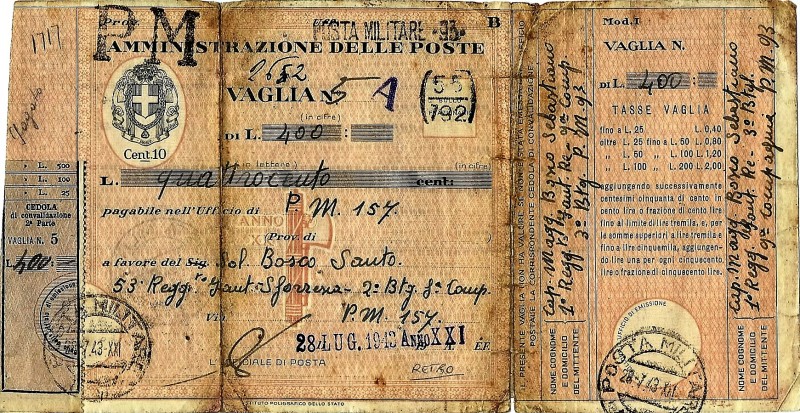 1717
Pagato
PM
POSTA MILITARE - 93
B
AMMINISTRAZIONE DELLE POSTE
2652
VAGLIA N. 5 A
(in cifre)
DI L. 400
55
792
Cent. 10
(in lettere)
(in cifre)
L. quattrocento cent:
pagabile nell'Ufficio di P M. 157.
ANNO
Prov. di
a favore del Sig. Sol. Bosco Santo.
53° Regg.to Fant. Sforzesca - 2° Btg. 8° Comp.
Via P.M. 157.
28 LUG. 1943 ANNO XXI
L'UFFICIALE DI POSTA
RETRO
ISTITUTO POLIGRAFICO DELLO STATO
L. 500
L. 100
L. 25
CEDOLA
di convalidazione
2ª Parte
VAGLIA N. 5
L. 400
POSTA MILITARE
PRESENTE VAGLIA NON HA VALORE SE NON
POSTALE LA CORRISPONDENTE CEDOLA DI CONVALIDAZIONE
NOME COGNOME
E DOMICILIO
DEL MITTENTE
Cap. Magg. Bosco Sebastiano
1° Regg. Fant. Re - 9ª Comp
3° Btg. P.M. 93
Mod. I
VAGLIA N.
DI L. 400
TASSE VAGLIA
fino a L. 25 L. 0,40
oltre L. 25 fino a L. 50 L. 0,80
" L. 50 " L. 100 L. 1,20
" L. 100 " L. 200 L. 2.00
aggiungendo successivamente
centesimi cinquanta di cento in
cento lire o frazione di cento lire
fino al limite di lire tremila, e, per
le somme superiori a lire tremila e
fino a lire cinquemila, aggiungen-
do lire una per ogni cinquecento
lire o frazione di cinquecento lire.
UFFICIO DI EMISSIONE
POSTA MILITARE
28-7.43-XXI
NOME COGNOME
E DOMICILIO
DEL MITTENTE
Cap. Magg. Bosco Sebastiano
1° Regg. Fant. Re - 3° Btg.
9ª Compagnia P.M. 93